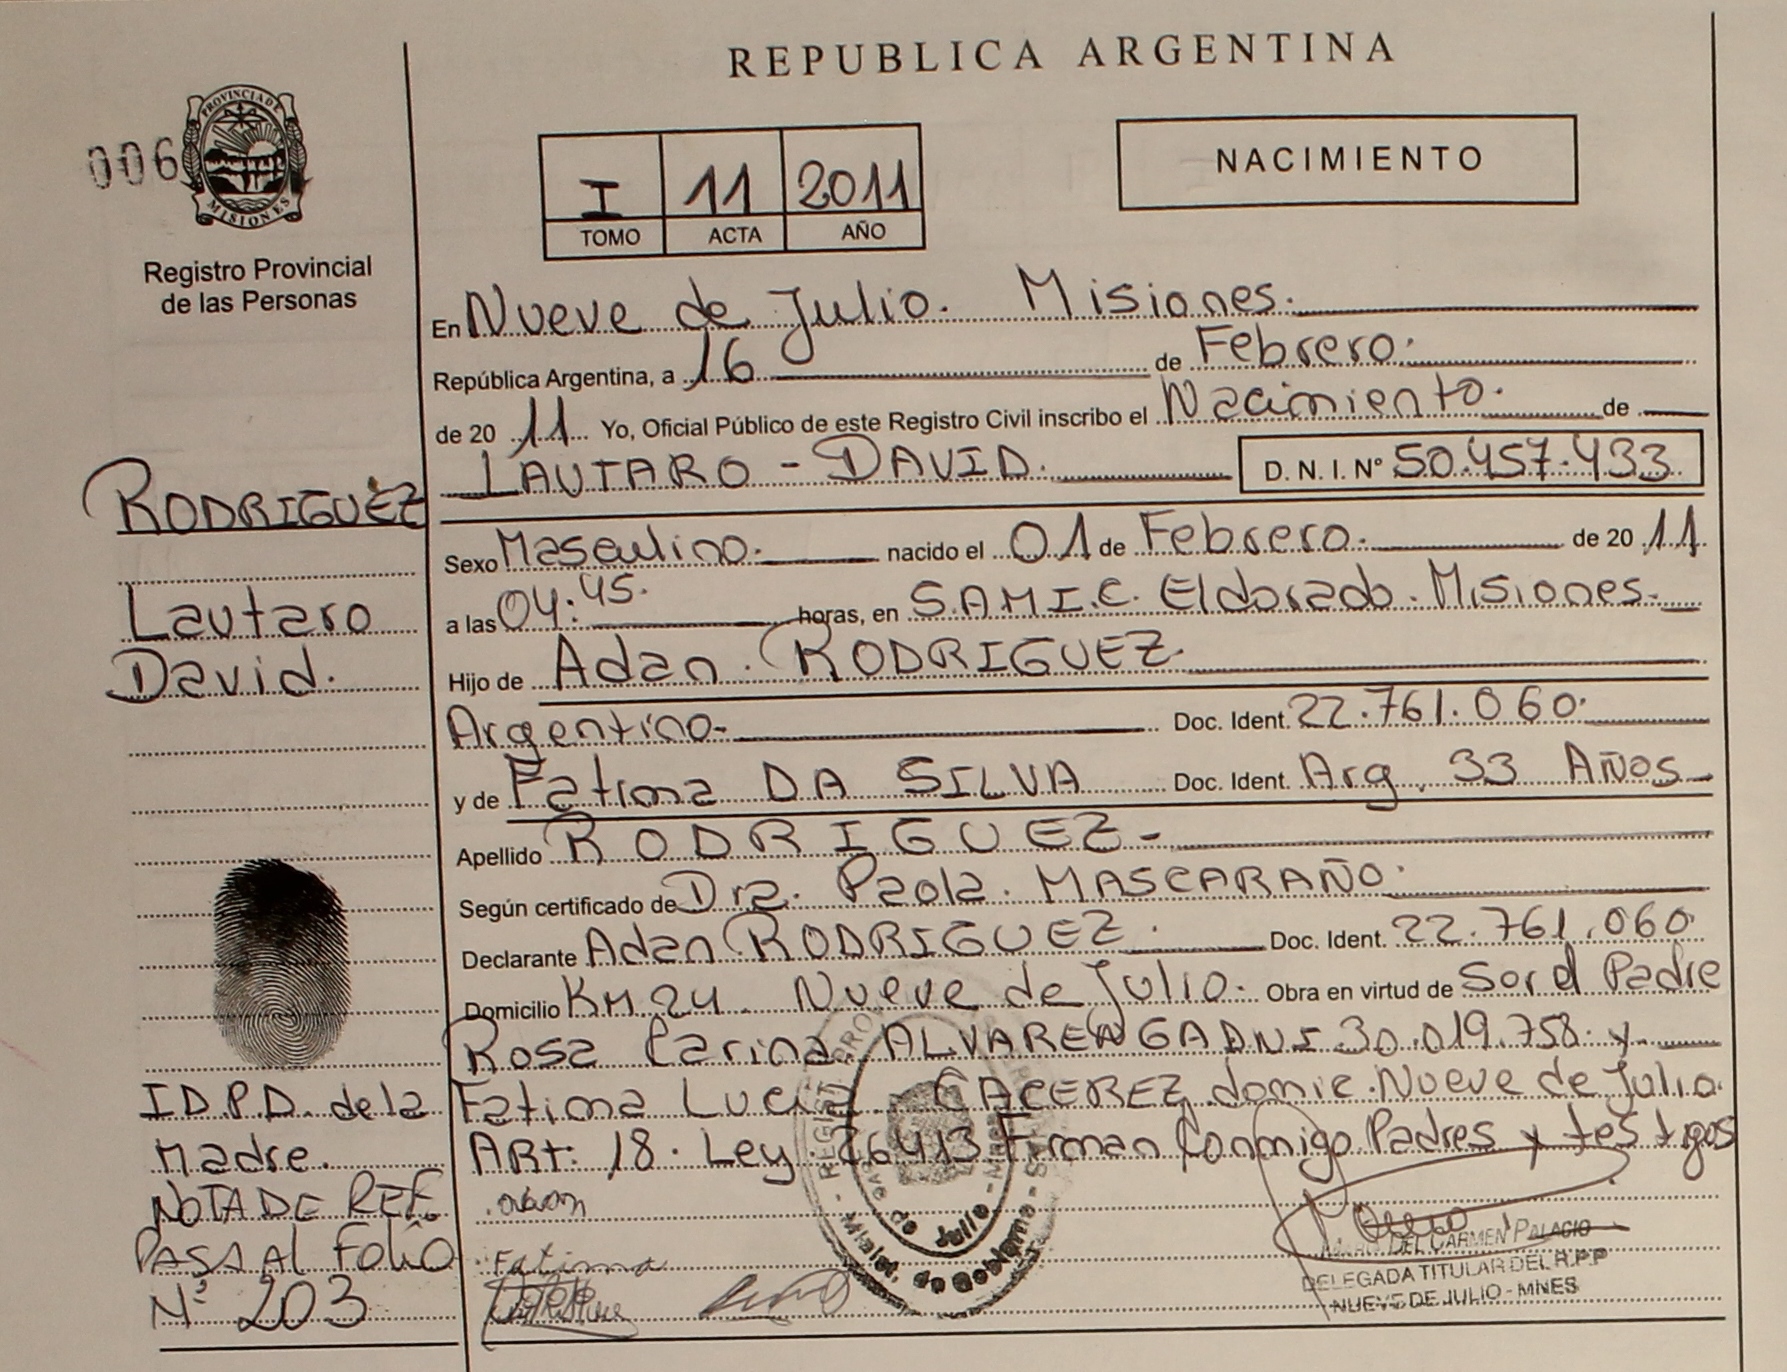 REPUBLICA ARGENTINA
006
PROVINCIA DE
MISIONES
Registro Provincial
de las Personas
I 11 2011
TOMO ACTA AÑO
NACIMIENTO
En Nueve de Julio. Misiones.
República Argentina, a 16 de Febrero.
de 20 11 Yo, Oficial Público de este Registro Civil inscribo el Nacimiento. de
LAUTARO - DAVID. D. N. I. Nº 50.457.433
RODRIGUEZ
Lautaro
David.
Sexo Masculino. nacido el 01 de Febrero. de 20 11
a las 04:45. horas, en S.A.M.I.C. Eldorado. Misiones.
Hijo de Adan. RODRIGUEZ.
Argentino. Doc. Ident. 22.761.060.
y de Fatima DA SILVA Doc. Ident. Arg. 33 AÑOS
Apellido RODRIGUEZ-
Según certificado de Dra. Paola. MASCARAÑO.
Declarante Adan RODRIGUEZ. Doc. Ident. 22.761.060
Domicilio KM 24. Nueve de Julio. Obra en virtud de Ser el Padre
Rosa Carina. ALVARENGA DNI 30.019.758. y
Fatima Lucia CACEREZ domic. Nueve de Julio.
ARt. 18. Ley 26413 Firman Conmigo Padres y testigos
I.D.P.D. de la
Madre.
NOTA DE REF.
PASA Al Folio
Nº 203
adan
Fatima
Nueve de Julio - Mnes
Minist. de Gobierno
MARIA DEL CARMEN PALACIO
DELEGADA TITULAR DEL R.P.P
NUEVE DE JULIO - MNES